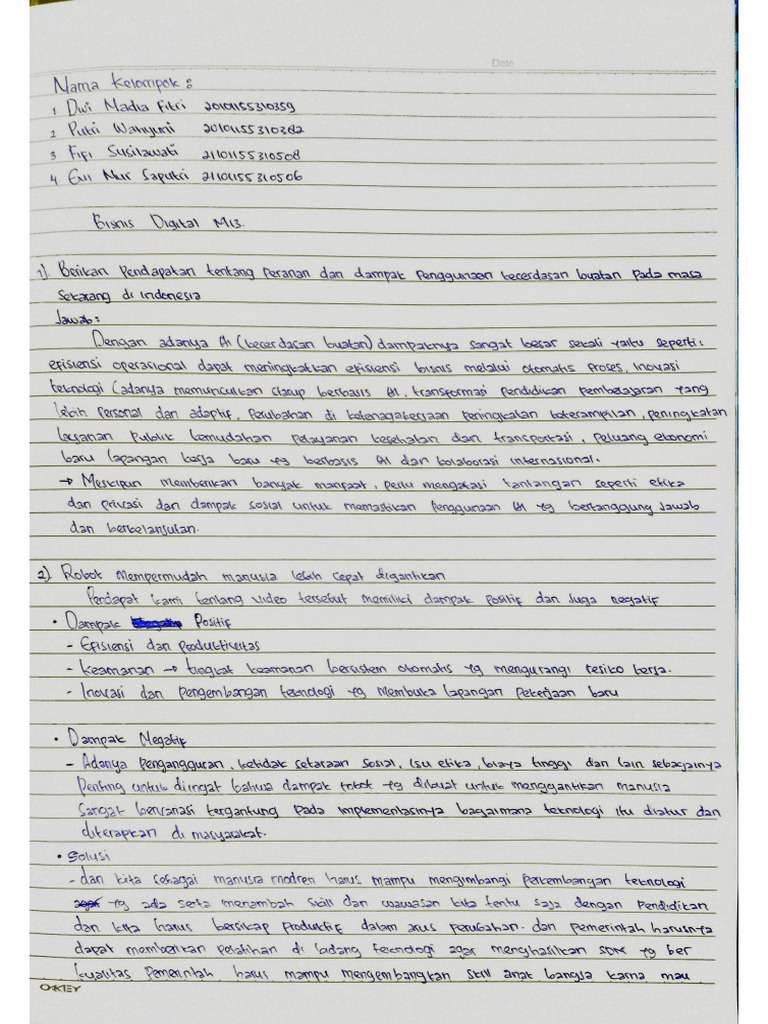 Date
Nama Kelompok :
1 Dwi Madia Fitri 20101155310359
2 Putri Wahyuni 20101155310382
3 Fifi Susilawati 21101155310508
4 Evi Nur Saputri 21101155310506
Bisnis Digital M13.
1) Berikan Pendapatan tentang peranan dan dampak penggunaan kecerdasan buatan pada masa
sekarang di Indonesia
Jawab :
Dengan adanya AI (kecerdasan buatan) dampaknya sangat besar sekali yaitu seperti :
efisiensi operasional dapat meningkatkan efisiensi bisnis melalui otomatis proses, inovasi
teknologi (adanya memunculkan starup berbasis AI, transformasi pendidikan pembelajaran yang
lebih personal dan adaptif, perubahan di ketenagakerjaan peningkatan keterampilan, peningkatan
layanan publik kemudahan pelayanan kesehatan dan transportasi, peluang ekonomi
baru lapangan kerja baru yg berbasis AI dan kolaborasi internasional.
→ Meskipun memberikan banyak manfaat, perlu mengatasi tantangan seperti etika
dan privasi dan dampak sosial untuk memastikan penggunaan AI yg bertanggung jawab
dan berkelanjutan.
2) Robot mempermudah manusia lebih cepat digantikan
Pendapat kami tentang video tersebut memiliki dampak positif dan juga negatif
• Dampak Positif
- Efisiensi dan productivitas
- Keamanan → tingkat keamanan bersistem otomatis yg mengurangi resiko kerja.
- Inovasi dan pengembangan teknologi yg membuka lapangan pekerjaan baru
• Dampak Negatif
- Adanya pengangguran, ketidak setaraan sosial, isu etika, biaya tinggi dan lain sebagainya
Penting untuk diingat bahwa dampak robot yg dibuat untuk menggantikan manusia
sangat bervariasi tergantung pada implementasinya bagaimana teknologi itu diatur dan
diterapkan di masyarakat.
• Solusi
- dan kita sebagai manusia modren harus mampu mengimbangi perkembangan teknologi
yg ada serta menambah skill dan wawasan kita tentu saja dengan pendidikan
dan kita harus bersikap produktif dalam arus perubahan. dan pemerintah harusnya
dapat memberikan pelatihan di bidang teknologi agar menghasilkan SDM yg ber
kualitas pemerintah harus mampu mengembangkan skill anak bangsa karna mau
OKEY